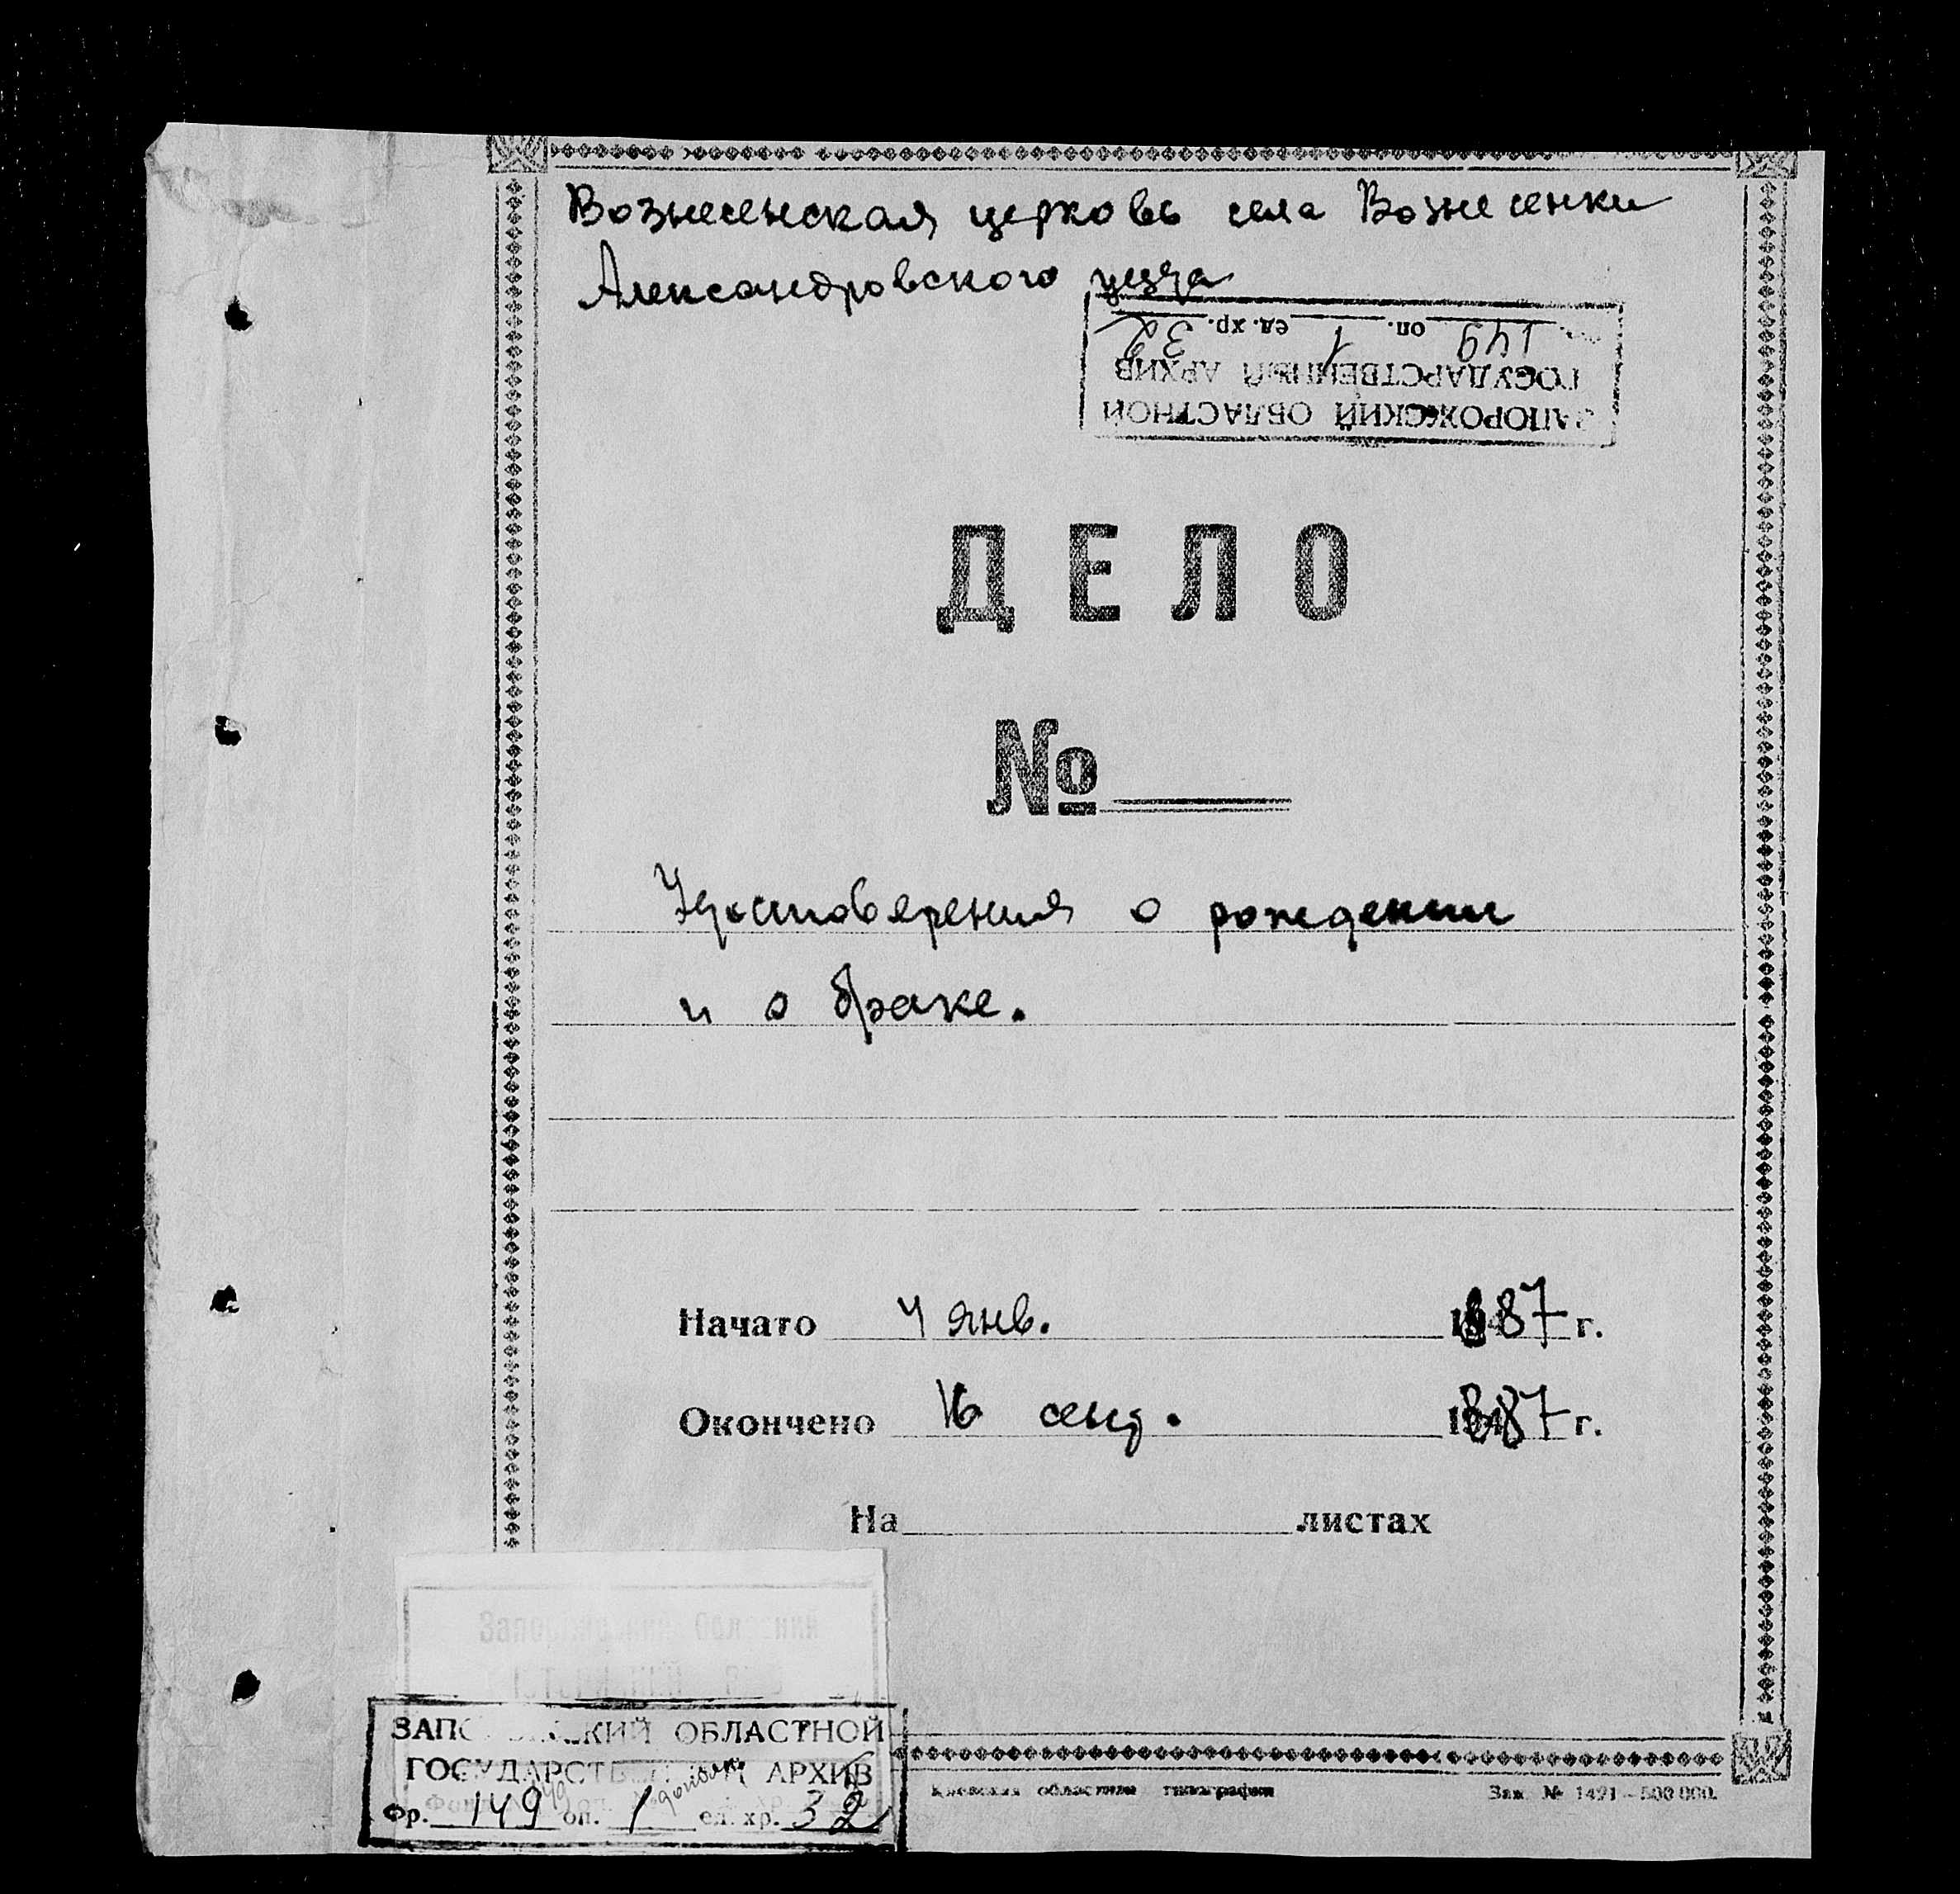 Вознесенская церковь села Вознесенки
Александровского уезда
ЗАПОРОЖСКИЙ ОБЛАСТНОЙ
ГОСУДАРСТВЕННЫЙ АРХИВ
149 оп. 1 ед. хр. 32
ДЕЛО
№
Удостоверения о рождении
и о браке.
Начато 4 янв. 1887 г.
Окончено 16 сент. 1887 г.
На листах
ЗАПОРОЖСКИЙ ОБЛАСТНОЙ
ГОСУДАРСТВЕННЫЙ АРХИВ
Фр. 149 оп. 1 ед. хр. 32
Киевская областная типография Зак. № 1491 – 500 000.